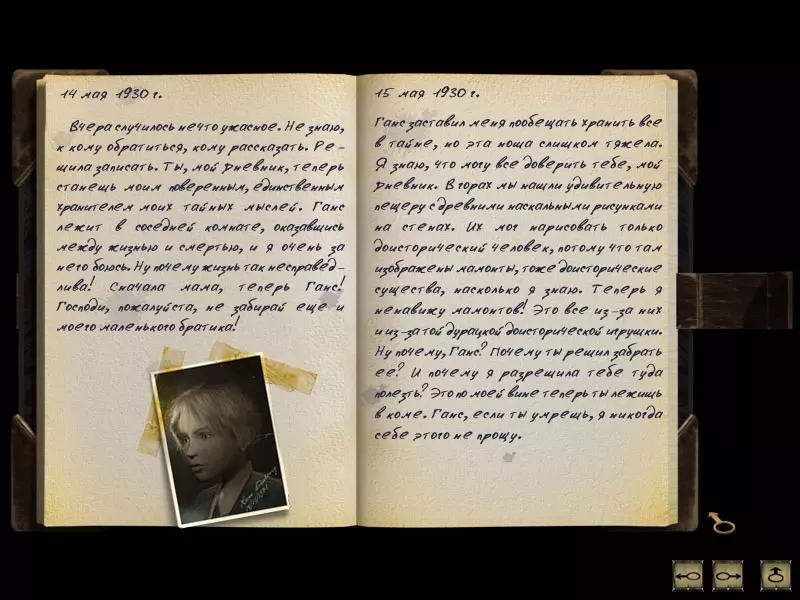 14 мая 1930 г.
Вчера случилось нечто ужасное. Не знаю,
к кому обратиться, кому рассказать. Ре-
шила записать. Ты, мой дневник, теперь
станешь моим поверенным, единственным
хранителем моих тайных мыслей. Ганс
лежит в соседней комнате, оказавшись
между жизнью и смертью, и я очень за
него боюсь. Ну почему жизнь так несправед-
лива! Сначала мама, теперь Ганс!
Господи, пожалуйста, не забирай еще и
моего маленького братика!
15 мая 1930 г.
Ганс заставил меня пообещать хранить все
в тайне, но эта ноша слишком тяжела.
Я знаю, что могу все доверить тебе, мой
дневник. В горах мы нашли удивительную
пещеру с древними наскальными рисунками
на стенах. Их мог нарисовать только
доисторический человек, потому что там
изображены мамонты, тоже доисторические
существа, насколько я знаю. Теперь я
ненавижу мамонтов! Это все из-за них
и из-за той дурацкой доисторической игрушки.
Ну почему, Ганс? Почему ты решил забрать
ее? И почему я разрешила тебе туда
полезть? Это по моей вине теперь ты лежишь
в коме. Ганс, если ты умрешь, я никогда
себе этого не прощу.